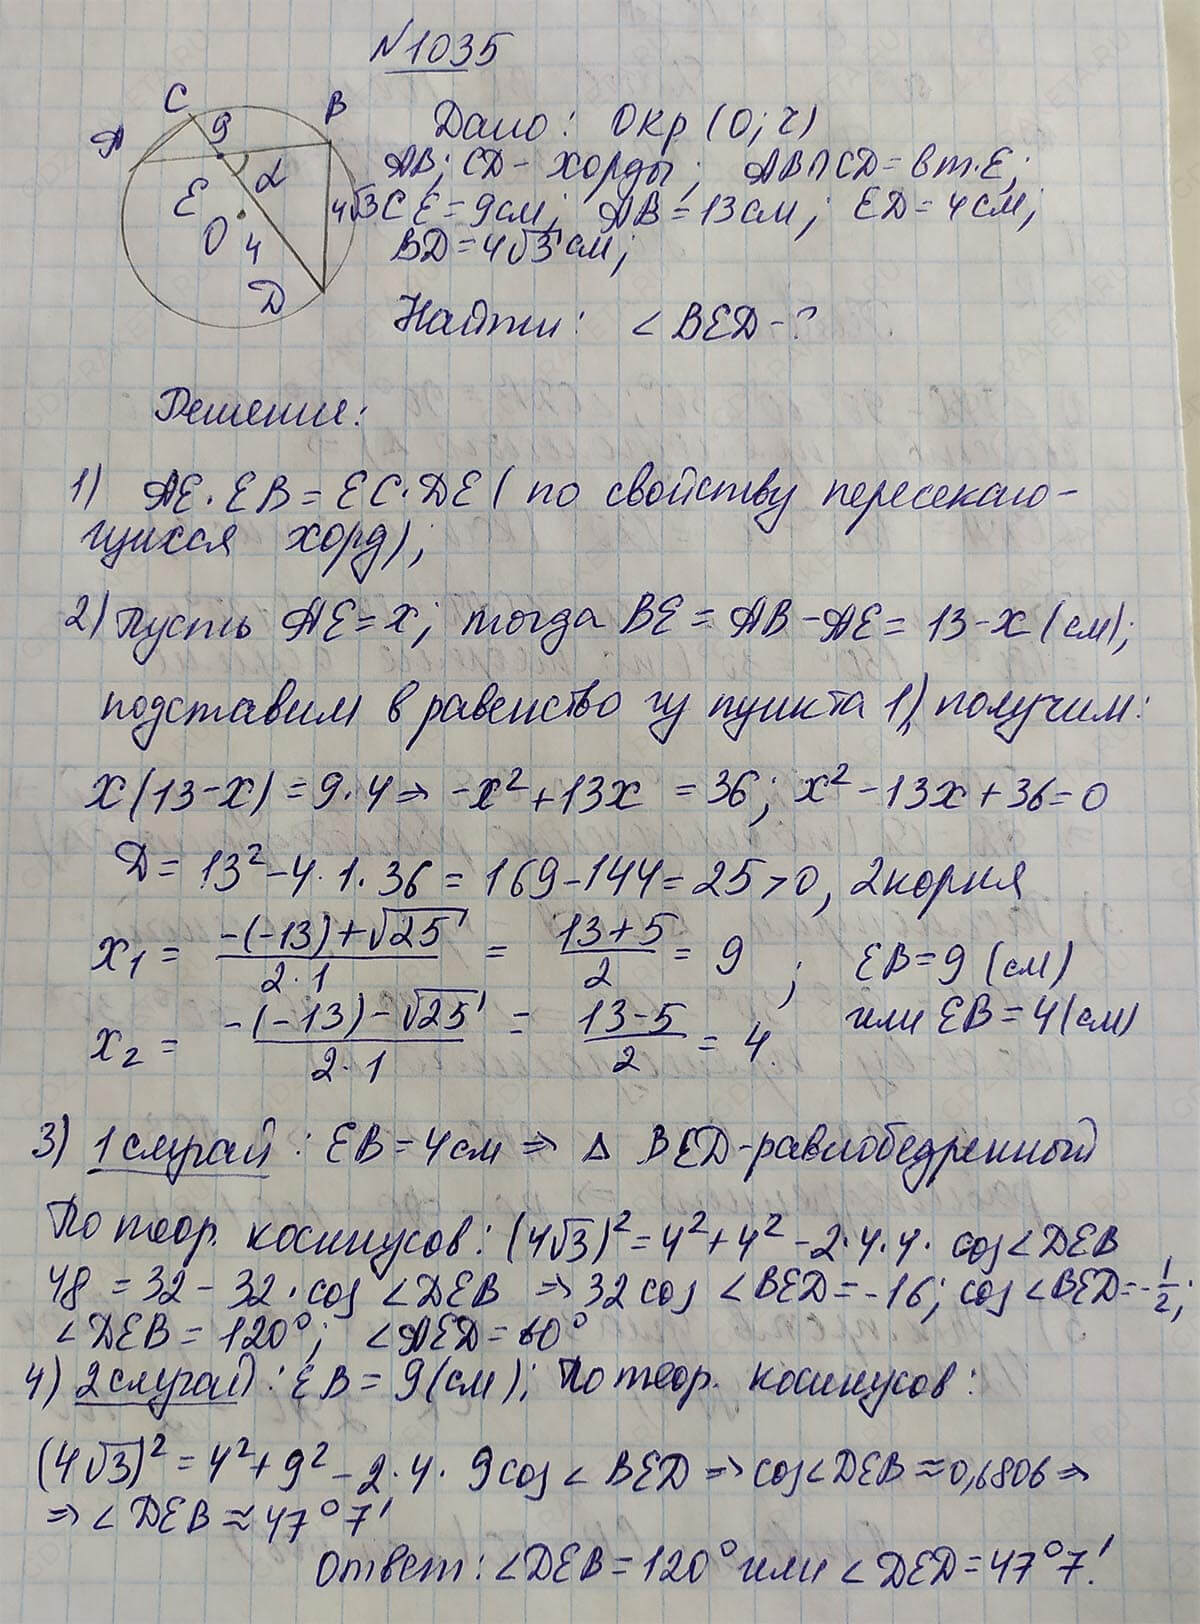 N1035
C
B
A
9
α
E
4√3
O
4
D
Дано: Окр (O; r)
AB; CD - хорды; AB∩CD = в т. E;
CE = 9см; AB = 13 см; ED = 4 см;
BD = 4√3 см;
Найти: ∠BED - ?
Решение:
1) AE · EB = EC · DE (по свойству пересекаю-
щихся хорд);
2) Пусть AE = x; тогда BE = AB - AE = 13 - x (см);
подставим в равенство из пункта 1), получим:
x(13 - x) = 9·4 ⇒ -x² + 13x = 36; x² - 13x + 36 = 0
D = 13² - 4·1·36 = 169 - 144 = 25 > 0, 2 корня
x₁ = (-(-13) + √25)/(2·1) = (13 + 5)/2 = 9; EB = 9 (см)
x₂ = (-(-13) - √25)/(2·1) = (13 - 5)/2 = 4. или EB = 4 (см)
3) 1 случай: EB = 4 см ⇒ Δ BED - равнобедренный
По теор. косинусов: (4√3)² = 4² + 4² - 2·4·4· cos∠DEB
48 = 32 - 32 · cos ∠DEB ⇒ 32 cos ∠BED = -16; cos ∠BED = -1/2;
∠DEB = 120°; ∠AED = 60°
4) 2 случай: EB = 9 (см); По теор. косинусов:
(4√3)² = 4² + 9² - 2·4· 9 cos ∠BED ⇒ cos∠DEB ≈ 0,6806 ⇒
⇒ ∠DEB ≈ 47°7'
Ответ: ∠DEB = 120° или ∠DED = 47°7'.